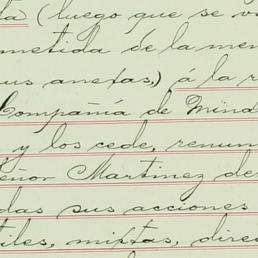 ta (luego que se va
metida de la men
us anexas,) á la r
Compañía de Mind
y los cede, renun
eñor Martinez de
das sus acciones
tiles, mixtas, direc